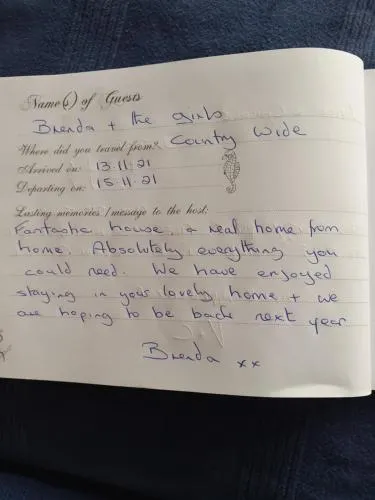 Name(s) of Guests
Brenda + the girls
Where did you travel from? Country Wide
Arrived on: 13.11.21
Departing on: 15.11.21
Lasting memories / message to the host:
Fantastic house, a real home from
home. Absolutely everything you
could need. We have enjoyed
staying in your lovely home + we
are hoping to be back next year
Brenda xx